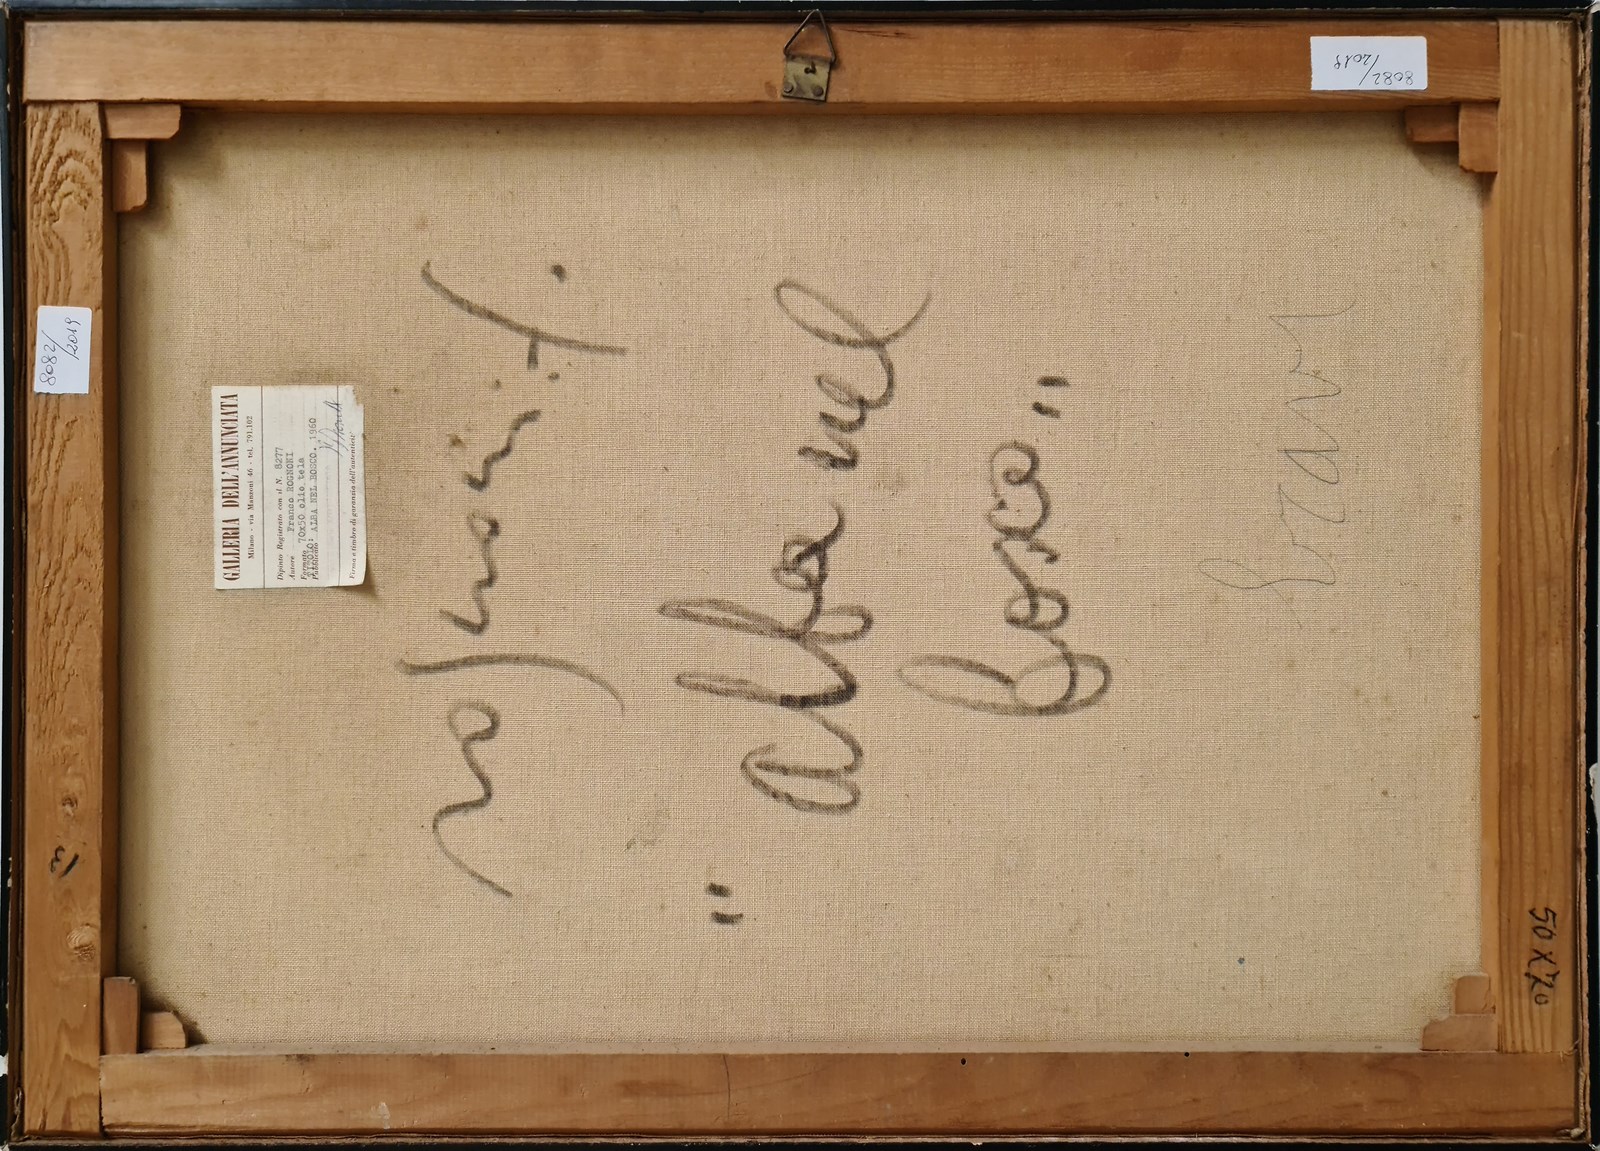 GALLERIA DELL'ANNUNCIATA
Milano - via Manzoni 46 - tel. 791.102
Dipinto Registrato con il N. 8277
Autore Franco ROGNONI
Formato 70x50 olio tela
Titolo: ALBA NEL BOSCO. 1960
Firma e timbro di garanzia dell'autenticità
rognoni f.
"alba nel
bosco"
8082/
/2019
8082/
/2018
50 X 70